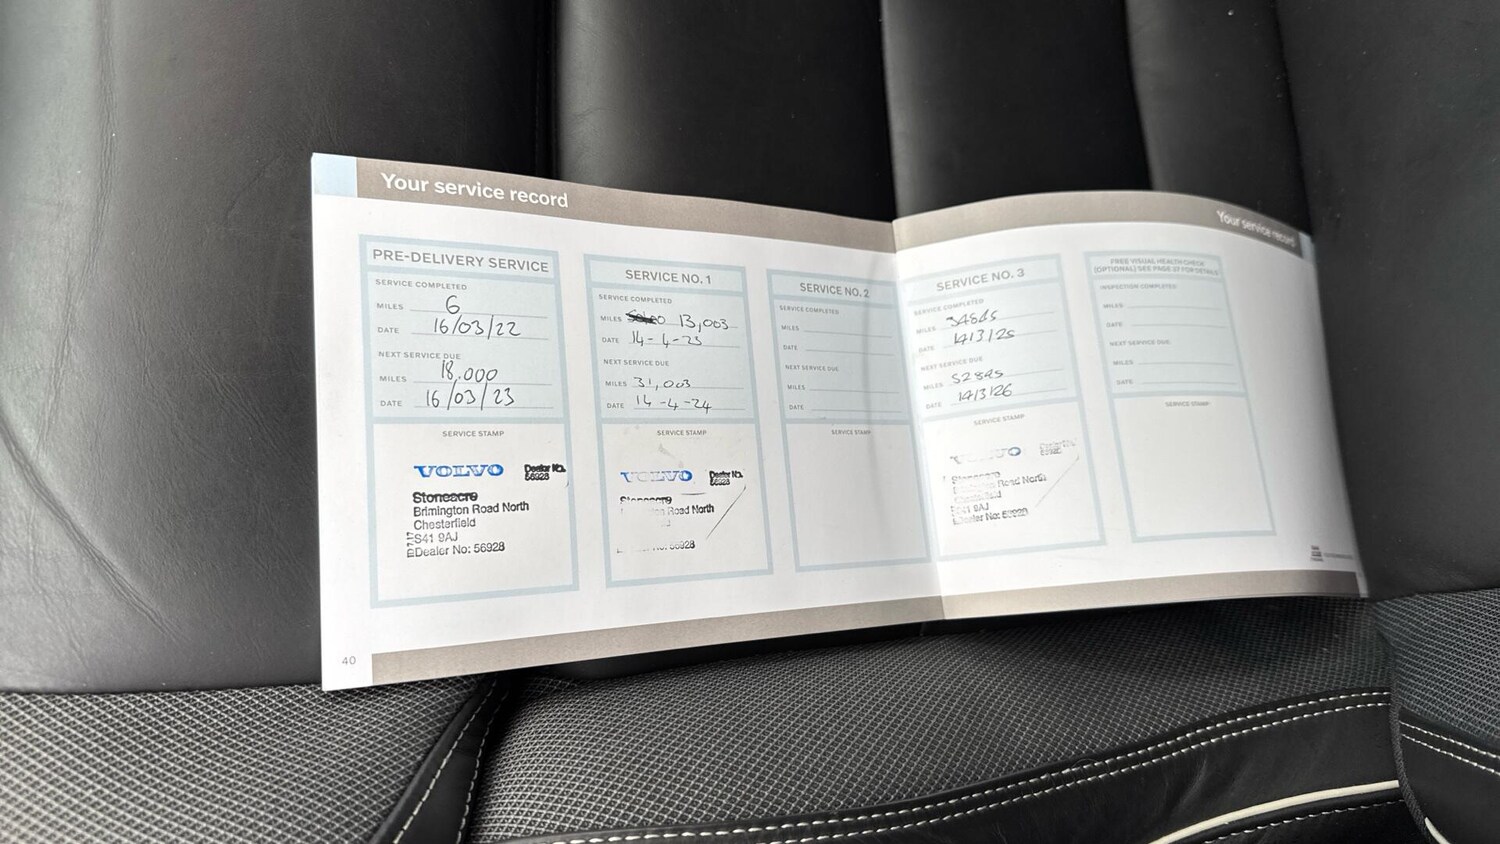 Your service record
PRE-DELIVERY SERVICE
SERVICE COMPLETED
MILES 6
DATE 16/03/22
NEXT SERVICE DUE
MILES 18.000
DATE 16/03/23
SERVICE STAMP
VOLVO Dealer No. 56928
Stoneacre
Brimington Road North
Chesterfield
S41 9AJ
Dealer No: 56928
40
SERVICE NO. 1
SERVICE COMPLETED
MILES 13,003
DATE 14-4-23
NEXT SERVICE DUE
MILES 31,003
DATE 14-4-24
SERVICE STAMP
VOLVO Dealer No. 56928
Stoneacre
Road North
56928
SERVICE NO. 2
SERVICE COMPLETED
MILES
DATE
NEXT SERVICE DUE
MILES
DATE
SERVICE STAMP
Your service record
SERVICE NO. 3
SERVICE COMPLETED
MILES 34845
DATE 14/3/25
NEXT SERVICE DUE
MILES 52845
DATE 14/3/26
SERVICE STAMP
VOLVO
Stoneacre
Brimington Road North
Chesterfield
S41 9AJ
Dealer No: 56928
FREE VISUAL HEALTH CHECK
(OPTIONAL) SEE PAGE 27 FOR DETAILS
INSPECTION COMPLETED
MILES
DATE
NEXT SERVICE DUE
MILES
DATE
SERVICE STAMP